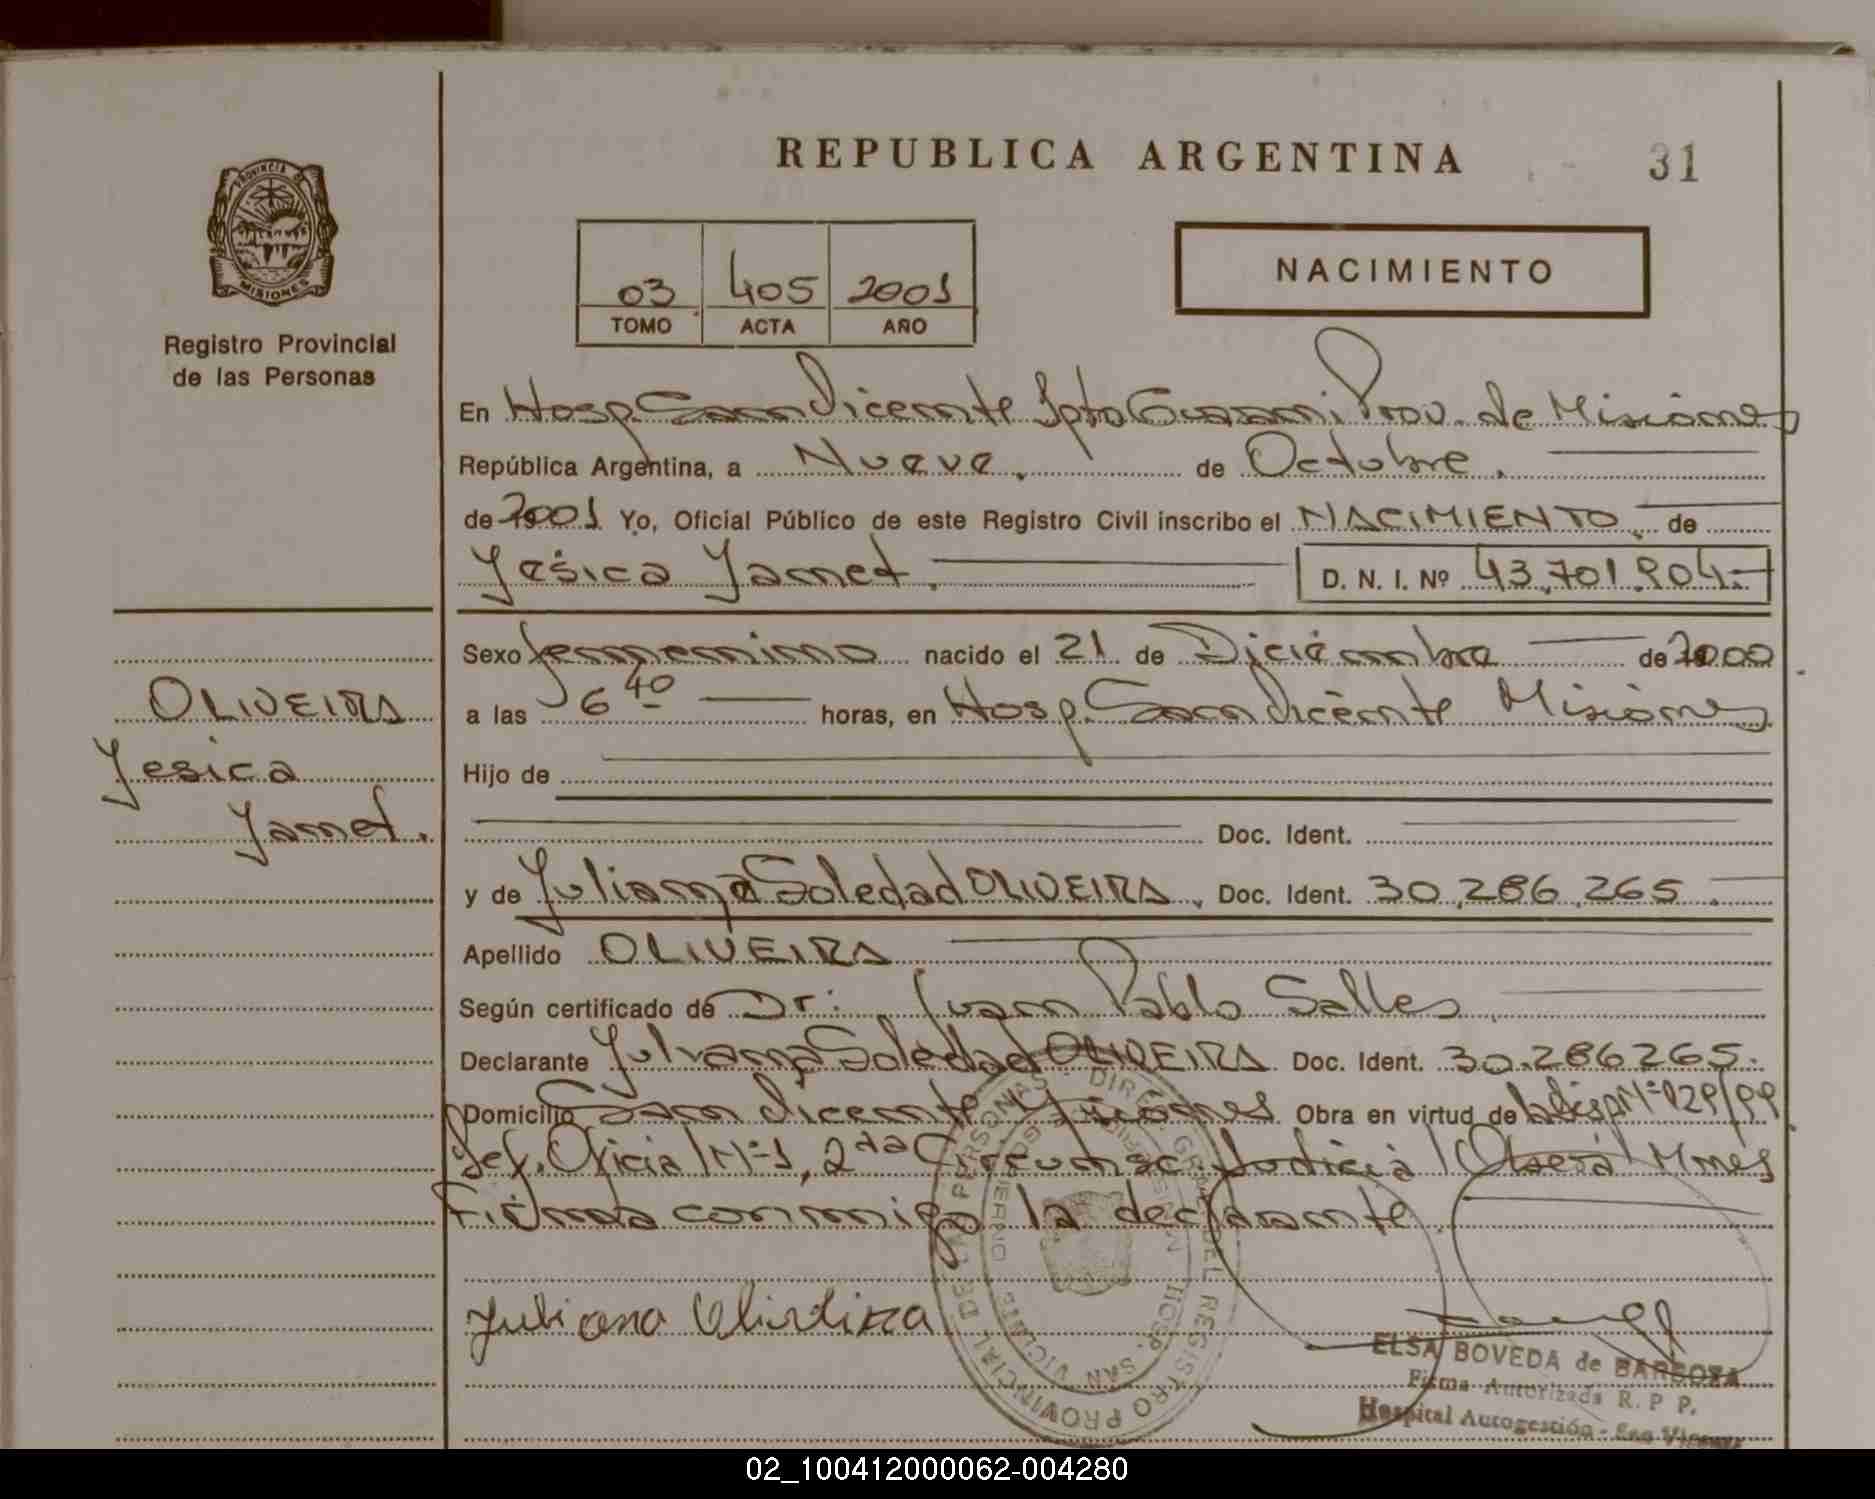 REPUBLICA ARGENTINA
31
PROVINCIA DE MISIONES
Registro Provincial
de las Personas
03 405 2001
TOMO ACTA AÑO
NACIMIENTO
En Hosp. San Vicente Dpto Guarani Prov. de Misiones
República Argentina, a Nueve. de Octubre.
de 2001 Yo, Oficial Público de este Registro Civil inscribo el NACIMIENTO de
Yesica Yamet. D. N. I. Nº 43.701.904.-
Sexo femenino nacido el 21 de Diciembre de 2000
a las 6 40 horas, en Hosp. San Vicente Misiones
Hijo de
Doc. Ident.
y de Juliana Soledad OLIVEIRA, Doc. Ident. 30.286.265.
Apellido OLIVEIRA
Según certificado de Dr: Juan Pablo Salles
Declarante Juliana Soledad OLIVEIRA Doc. Ident. 30.286265.
Domicilio San Vicente Misiones Obra en virtud de
Def. Oficial Nº 1, 2da Circunsc. Judicial Oberá Mnes
Firma conmigo la declarante.
OLIVEIRA
Yesica
Yamet.
Juliana Oliveira
DIREC. GRAL. DEL REGISTRO PROVINCIAL DE LAS PERSONAS
HOSP. SAN VICENTE
ELSA BOVEDA de BARBOZA
Firma Autorizada R. P. P.
Hospital Autogestión - San Vicente
02_100412000062-004280